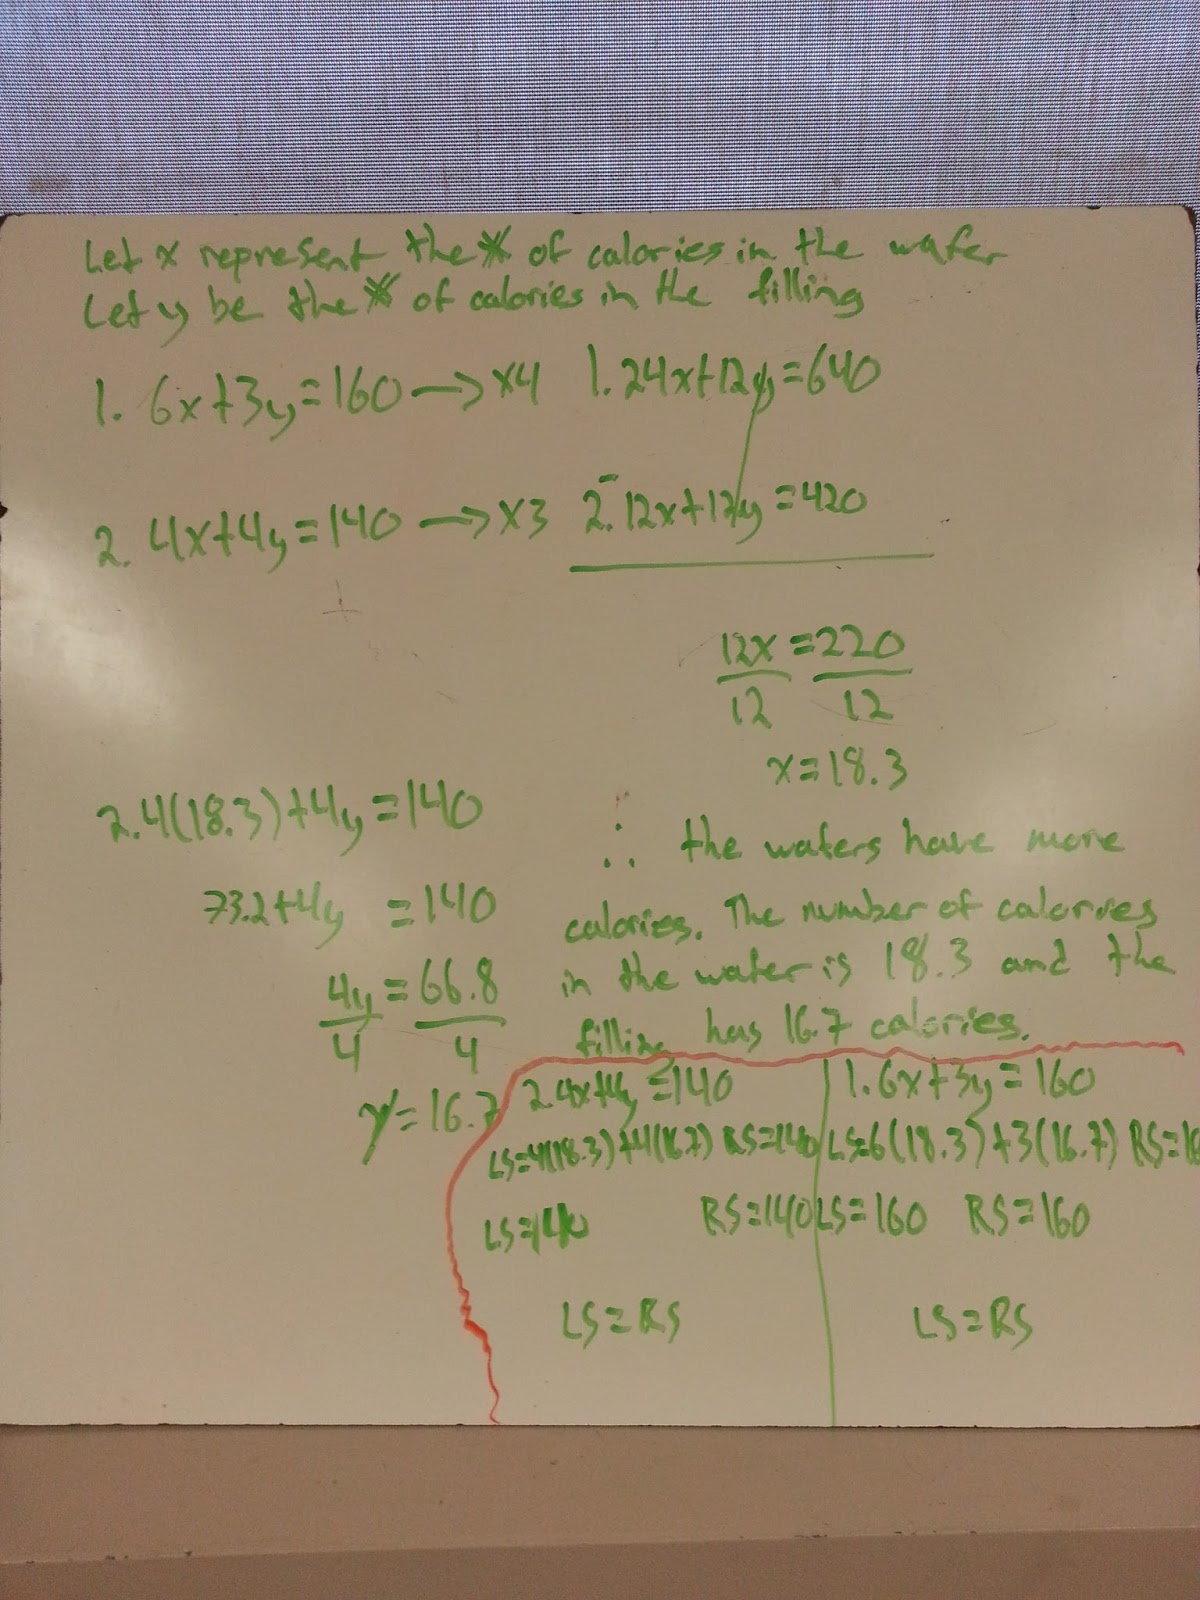 Let x represent the # of calories in the wafer
Let y be the # of calories in the filling
1. 6x+3y=160 → x4 1. 24x+12y=640
2. 4x+4y=140 → x3 2. 12x+12y=420
-
12x=220
12 12
x=18.3
2. 4(18.3)+4y=140
73.2+4y =140
4y=66.8
4 4
y=16.7
∴ the wafers have more
calories. The number of calories
in the wafer is 18.3 and the
filling has 16.7 calories.
2. 4x+4y=140
LS=4(18.3)+4(16.7) RS=140
LS=140 RS=140
LS=RS
1. 6x+3y=160
LS=6(18.3)+3(16.7) RS=16
LS=160 RS=160
LS=RS